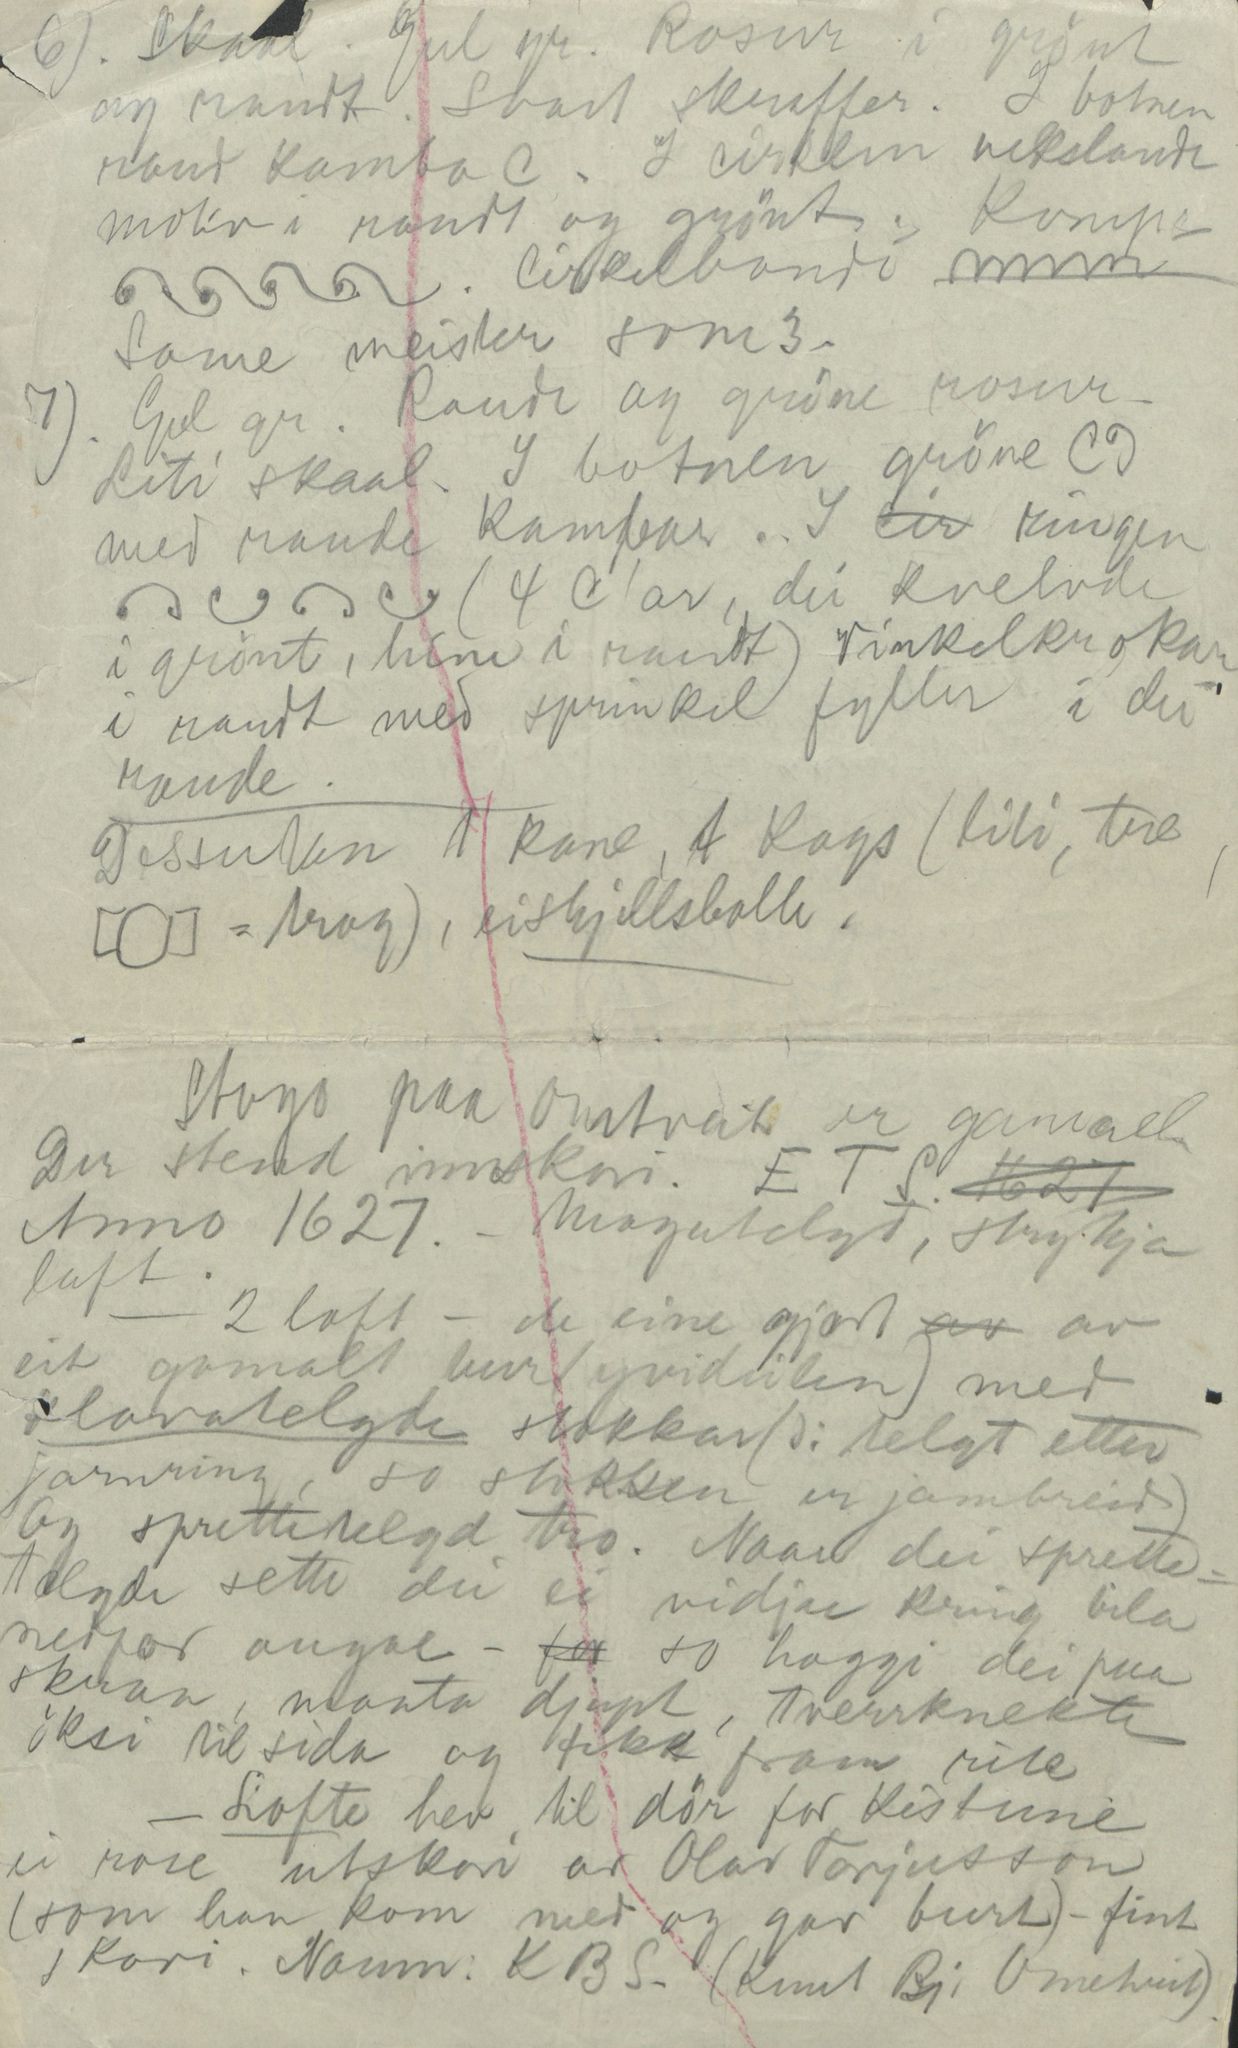 6). Skaal. Gul gr. Rosur i grönt
og raudt. Svart skraffer. I botnen
raud kamba C. I cirklen vekslande
motiv i raudt og grönt.
Cirkelbandi
Same meister som 3.
7). Gul gr. Raude og gröne rosur.
Liti skaal. I botnen gröne CC
med raude kambar. I cir ringen
(4 C'ar, dei kvelvde
i grönt, hine i raudt) Vinkelkrokar
i raudt med sprinkel fyller i dei
raude.
Dessutan 1 kane, 1 kags (liti, tre,
= trog), ei skjillsbolle.
Stogo paa Omtveit er gamall.
Der stend innskori. E T S. 1627
Anno 1627. - Magatelgt, strykja
laft.
— 2 loft - de eine gjort av av
eit gamalt bur med
olavatelgde stokkar (ɔ: telgt etter
jarnring, so stokken er jambreid)
Og sprettetelgd tro. Naar dei sprette-
telgde sette dei ei vidjae kring bila
nedfor augae - for so hoggi dei paa
skraa, maata djupt, tverrknekte
öksi til sida og fekk fram rite
— Siofte hev til dör for kistune
ei rose utskori av Olav Torjusson
(som han kom med og gav burt) - fint
skori. Naum: K B S. (Knut Bj. Omtveit).